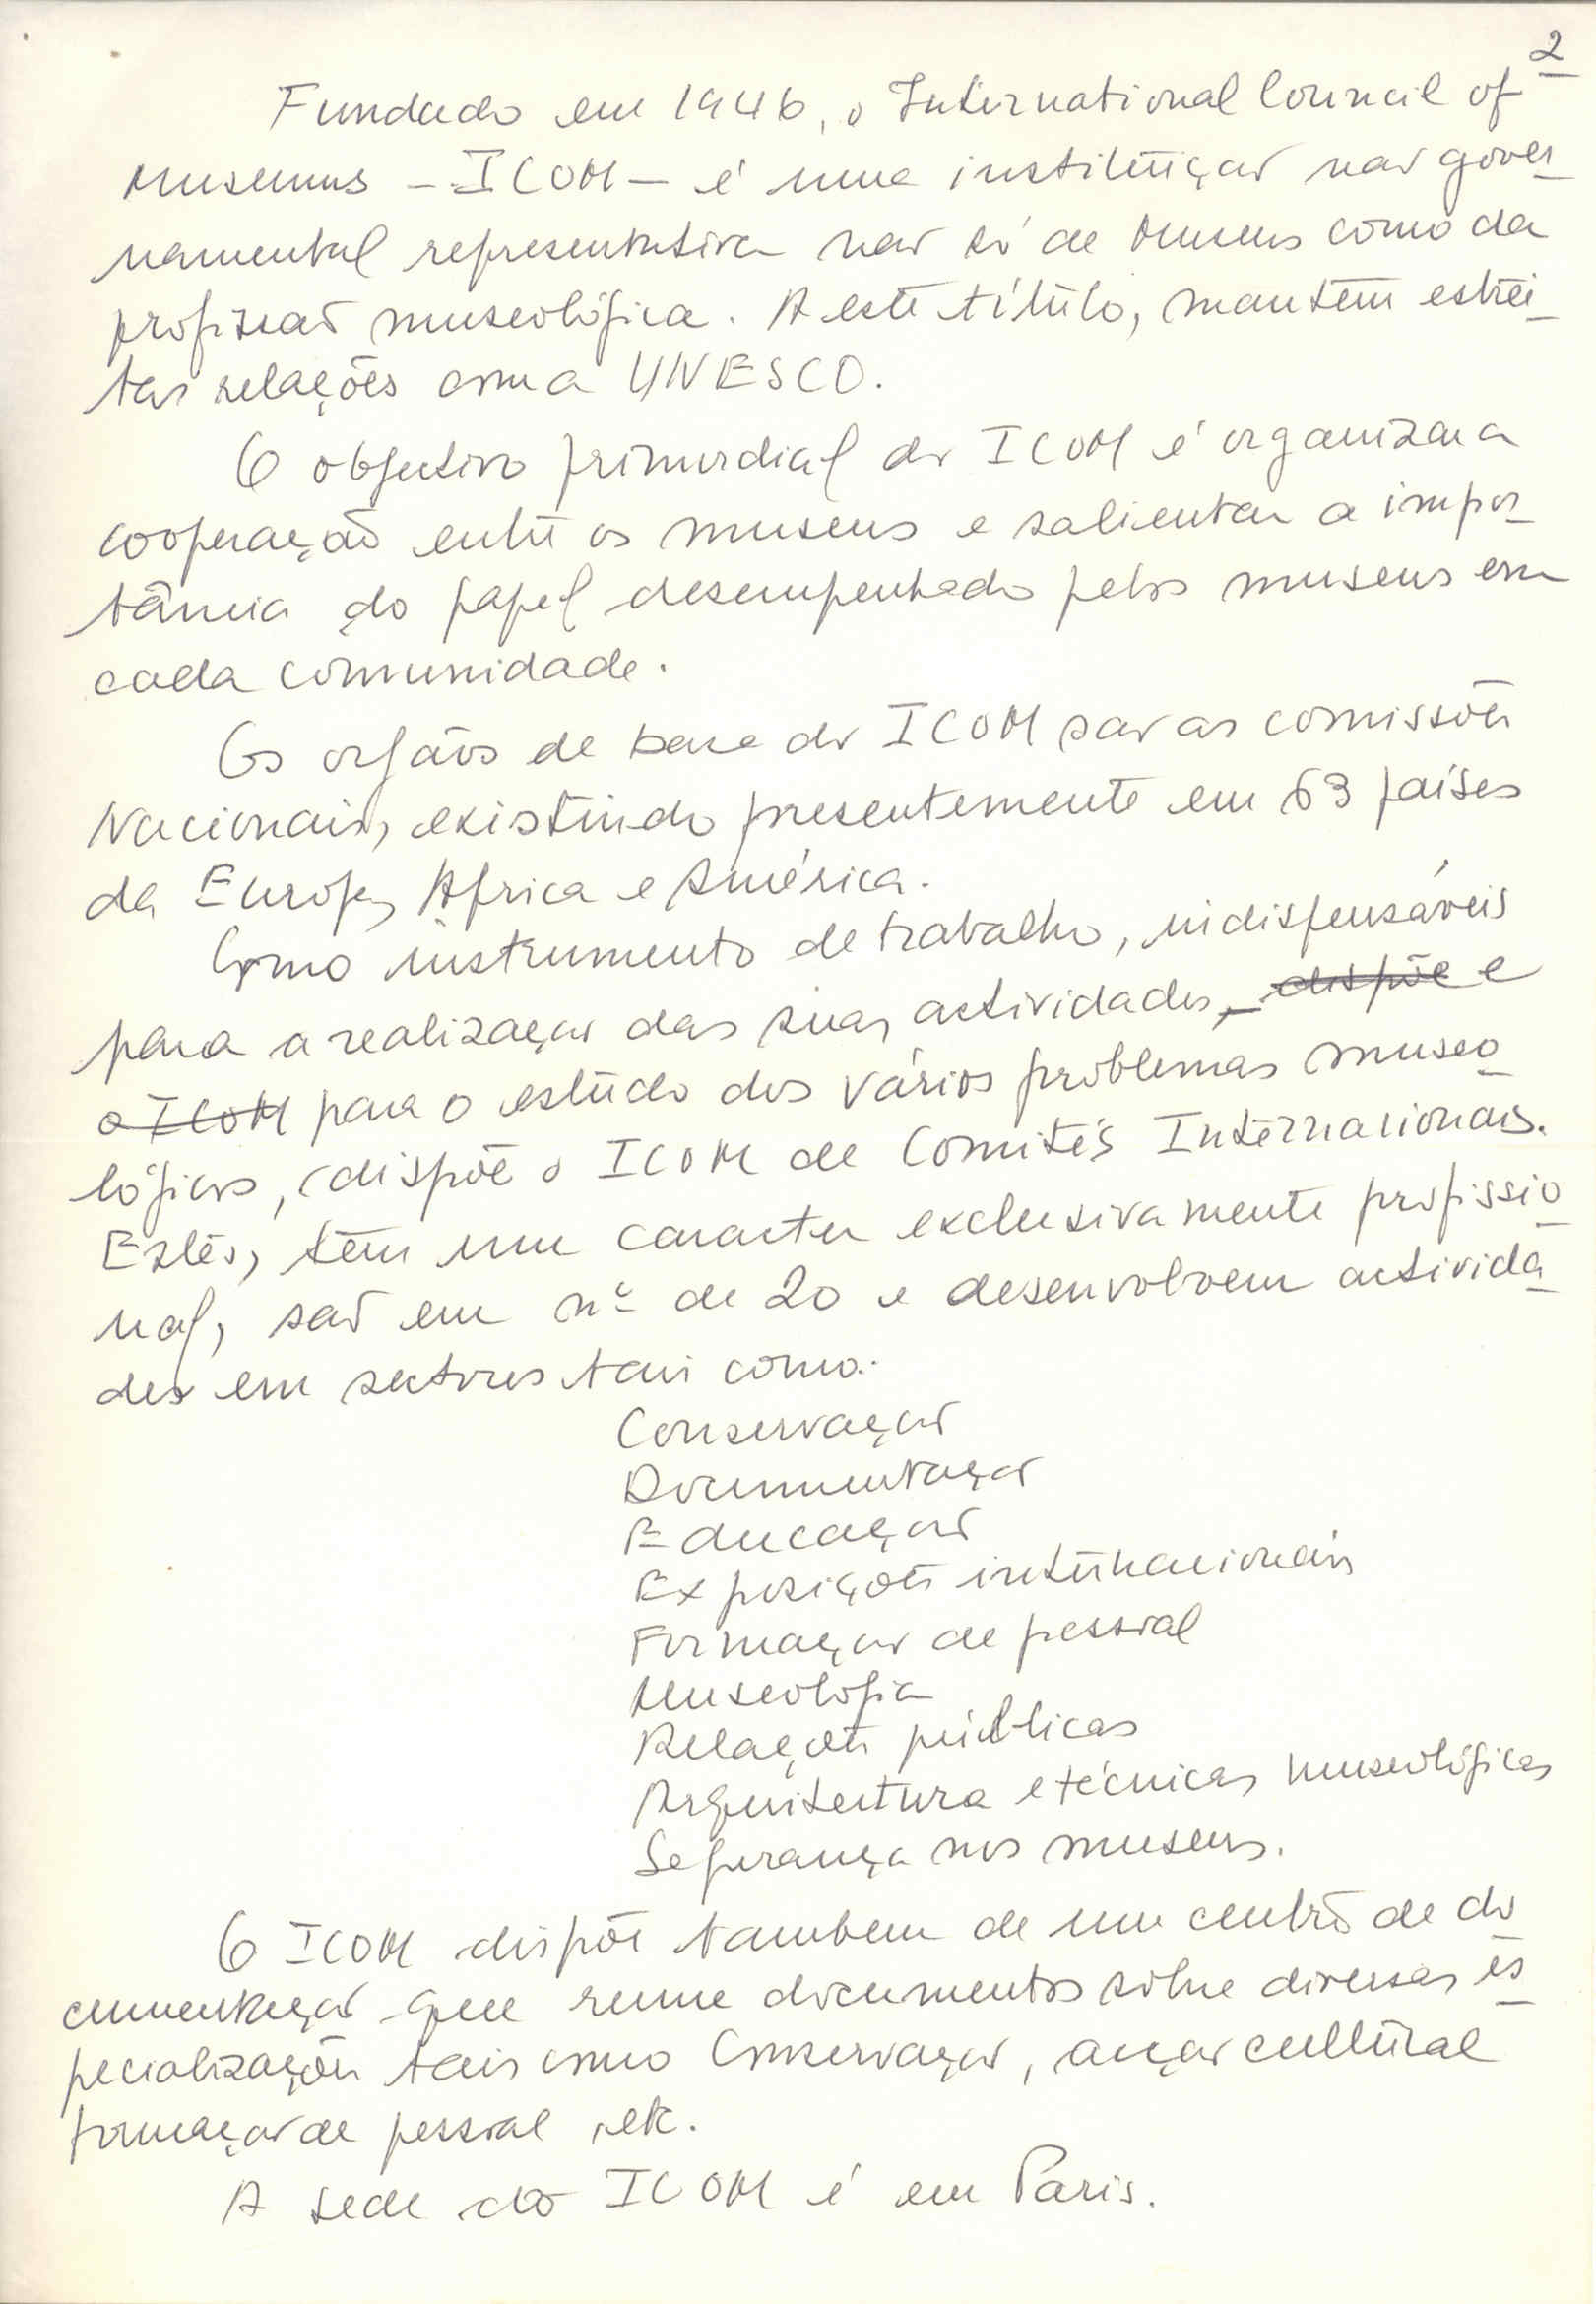 2
Fundado em 1946, o International Council of
Museums - ICOM - é uma instituição não gover
namental representativa não só de Museus como da
profissão museológica. A este título, mantém estrei
tas relações com a UNESCO.
O objectivo primordial do ICOM é organizar a
cooperação entre os museus e salientar a impor
tância do papel desempenhado pelos museus em
cada comunidade.
Os orgãos de base do ICOM são as comissões
Nacionais, existindo presentemente em 63 países
da Europa, Africa e América.
Como instrumento de trabalho, indispensáveis
para a realização das suas actividades, dispõe e
o ICOM para o estudo dos vários problemas museo
lógicos, dispõe o ICOM de Comités Internacionais.
Estes, têm um caracter exclusivamente profissio
nal, são em nº de 20 e desenvolvem activida
des em sectores tais como:
Conservação
Documentação
Educação
Exposições internacionais
Formação de pessoal
Museologia
Relações públicas
Arquitectura e técnicas museológicas
Segurança nos museus.
O ICOM dispõe tambem de um centro de do
cumentação que reune documentos sobre diversas es
pecializações tais como Conservação, acção cultural
formação de pessoal, etc.
A sede do ICOM é em Paris.